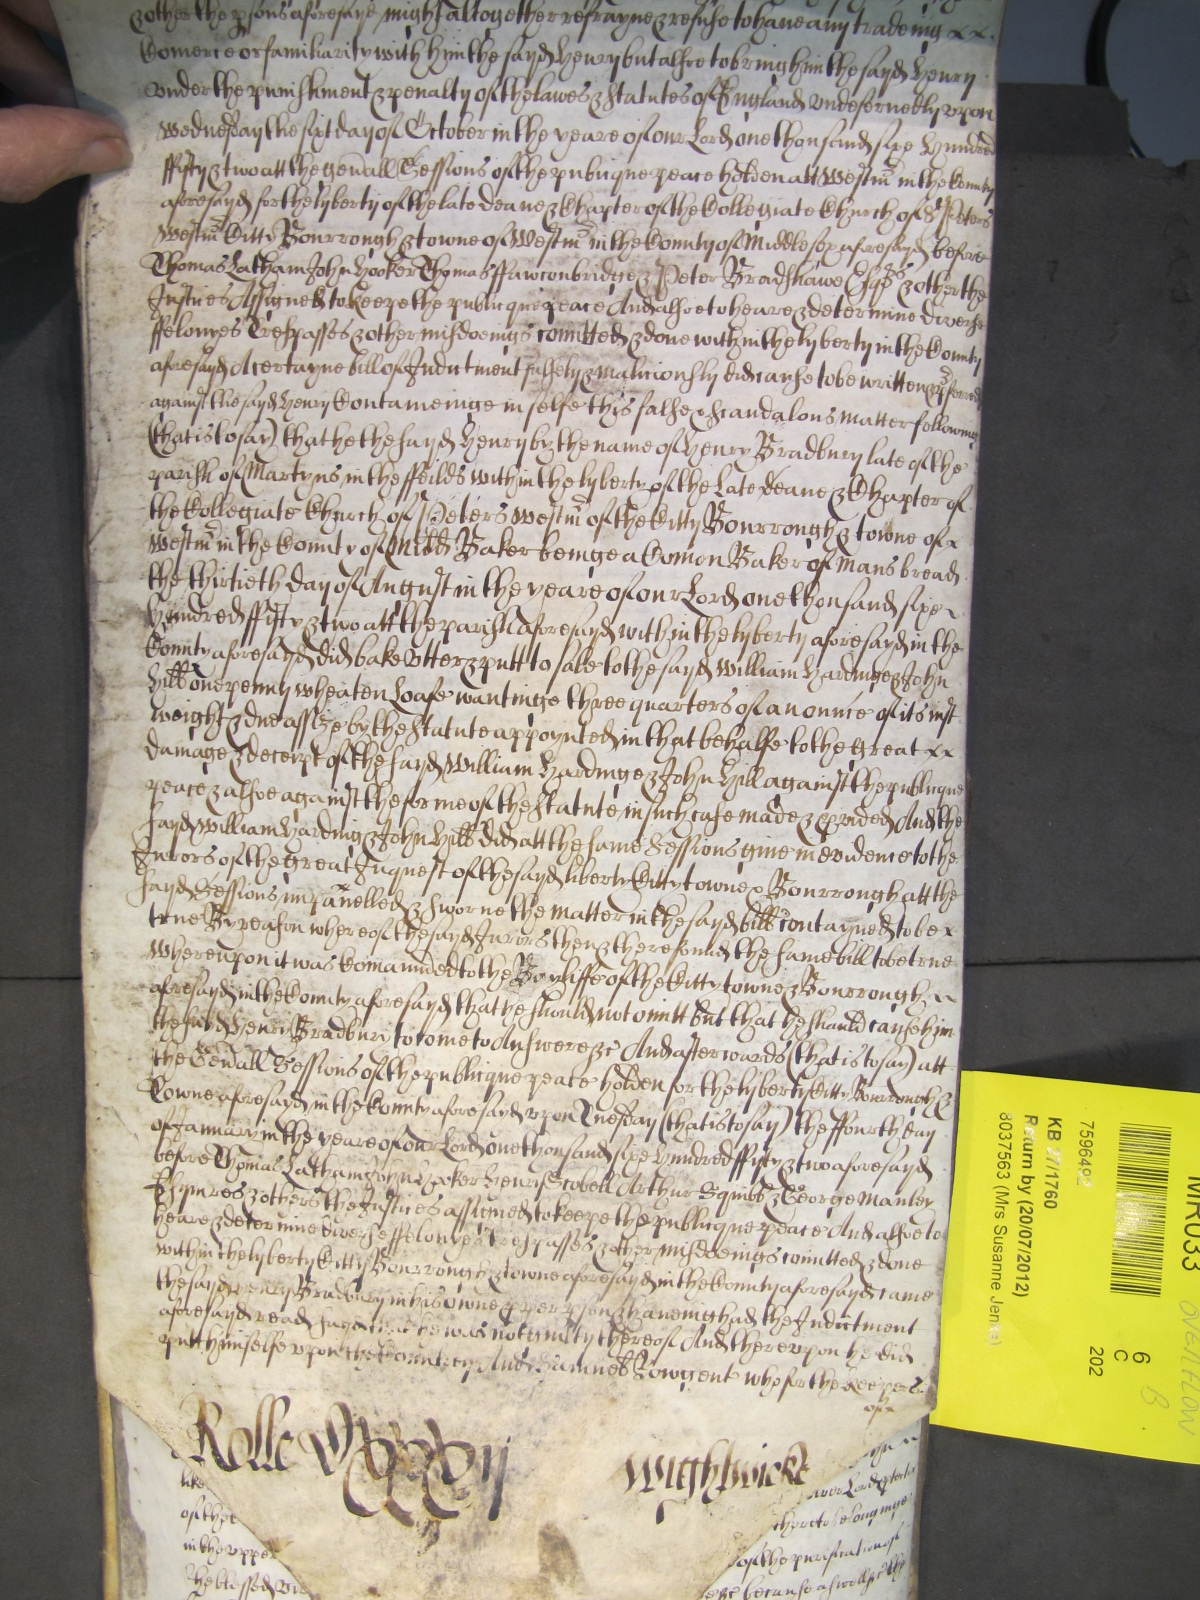 & other the psons aforesayd might altogether refrayne & refuse to have any tradeing xx
Comerce or familiarity with him the sayd Henry but alsoe to bring him the sayd Henry
under the punishment & penalty of the lawes & statutes of England undeservedly upon
Wednesday the sixt day of October in the yeare of our Lord one thousand sixe hundred
ffifty & two att the genall Sessions of the publique peace holden att Westm in the County
aforesayd for the lyberty of the late deane & Chapter of the Collegiate Church of St Peters
Westm Citty Bourrough & towne of Westm in the County of Middlesex aforesayd before
Thomas Latham John Hooker Thomas ffawconbridge & Peter Bradshawe Esqrs & other the
Justices Assigned to keepe the publique peace And alsoe to heare & determine divers
ffelonyes Trespasses & other misdoeings comitted & done within the lyberty in the County
aforesayd A certayne bill of Indictment falsely & maliciously did cause to be written & pferred
against the sayd Henry Contameinge in selfe this false & scandalous matter following
(that is to say) that he the sayd Henry by the name of Henry Bradbury late of the
parish of Martyns in the ffeilds within the lyberty of the Late deane & Chapter of
the Collegiate Church of Peters Westm of the Citty Bourrough & towne of x
Westm in the County of Midd Baker beinge a Comon Baker of Mans bread
the thirtieth day of August in the yeare of our Lord one thousand sixe
hundred ffifty & two att the parish aforesayd within the lyberty aforesayd in the
County aforesayd did bake utter & putt to sale to the sayd William Hardinge & John
Hill one penny wheaten Loafe wantinge three quarters of an ounce of its just
weight & due assize by the Statute appoynted in that behalfe to the great xx
damage & deceipt of the sayd William Hardinge & John Hill against the publique
peace & alsoe against the forme of the Statute in such case made & pvided And the
sayd William Harding & John Hill did att the same Sessions give in evidence to the
Jurors of the great Inquest of the sayd liberty Citty towne & Bourrough att the
sayd Sessions impanelled & sworne the matter in the sayd bill contayned to be x
true By reason whereof the sayd Jurors then & there found the same bill to be true
Whereupon it was Comaunded to the Bayliffe of the Citty towne & Bourrough
aforesayd in the County aforesayd that he should not omitt but that he should cause him
the sayd Henry Bradbury to come to Answere &c And afterwards (that is to say) att
the Genall Sessions of the publique peace holden for the lyberty Citty Bourrough &
Towne aforesayd in the County aforesayd upon Tuesday (that is to say) the ffourth day
of January in the yeare of our Lord one thousand sixe hundred ffifty & two aforesayd
before Thomas Latham John Hooker Henry Scobell Arthur Squibb & George Manley
Esquires & others the Justices assigned to keepe the publique peace And alsoe to
heare & determine divers ffelonyes trespasses & other misdoeings comitted & done
within the lyberty Citty Bourrough & towne aforesayd in the County aforesayd came
the sayd Henry Bradbury in his owne pper pson & haveing had the Indictment
aforesayd read sayd he was not guilty thereof And thereupon he did
putt himselfe upon the Country And Samuel Lowgent who for the keepers
of x
Rolle Wightwicke
like
of the
in the upper
the blessed
our Lord
thereto belonginge
of the purification of
because aswell
759649
KB 27/1760
Return by (20/07/2012)
8037563 (Mrs Susanne Jen
MR033
6
C
202
B
OVERFLOW